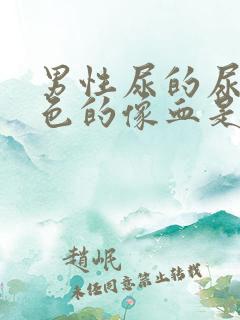 男性尿的尿
色的像血是
趙岷
未经同意禁止转载